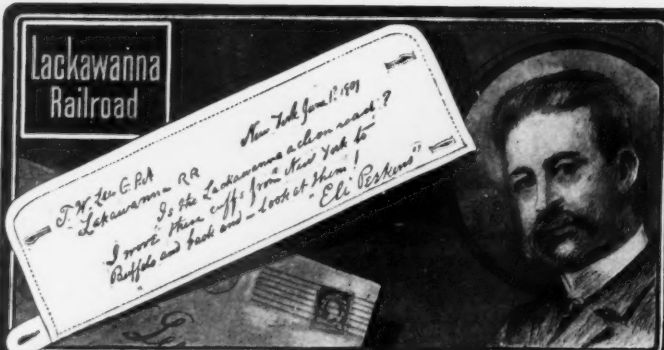 Lackawanna
Railroad
New York June 1st 1901
T. W. Lee G.P.A
Lakawanna RR
"Is the Lackawanna a clean road?
I wore these cuffs from New York to
Buffalo and back and - look at them!
"Eli Perkins"